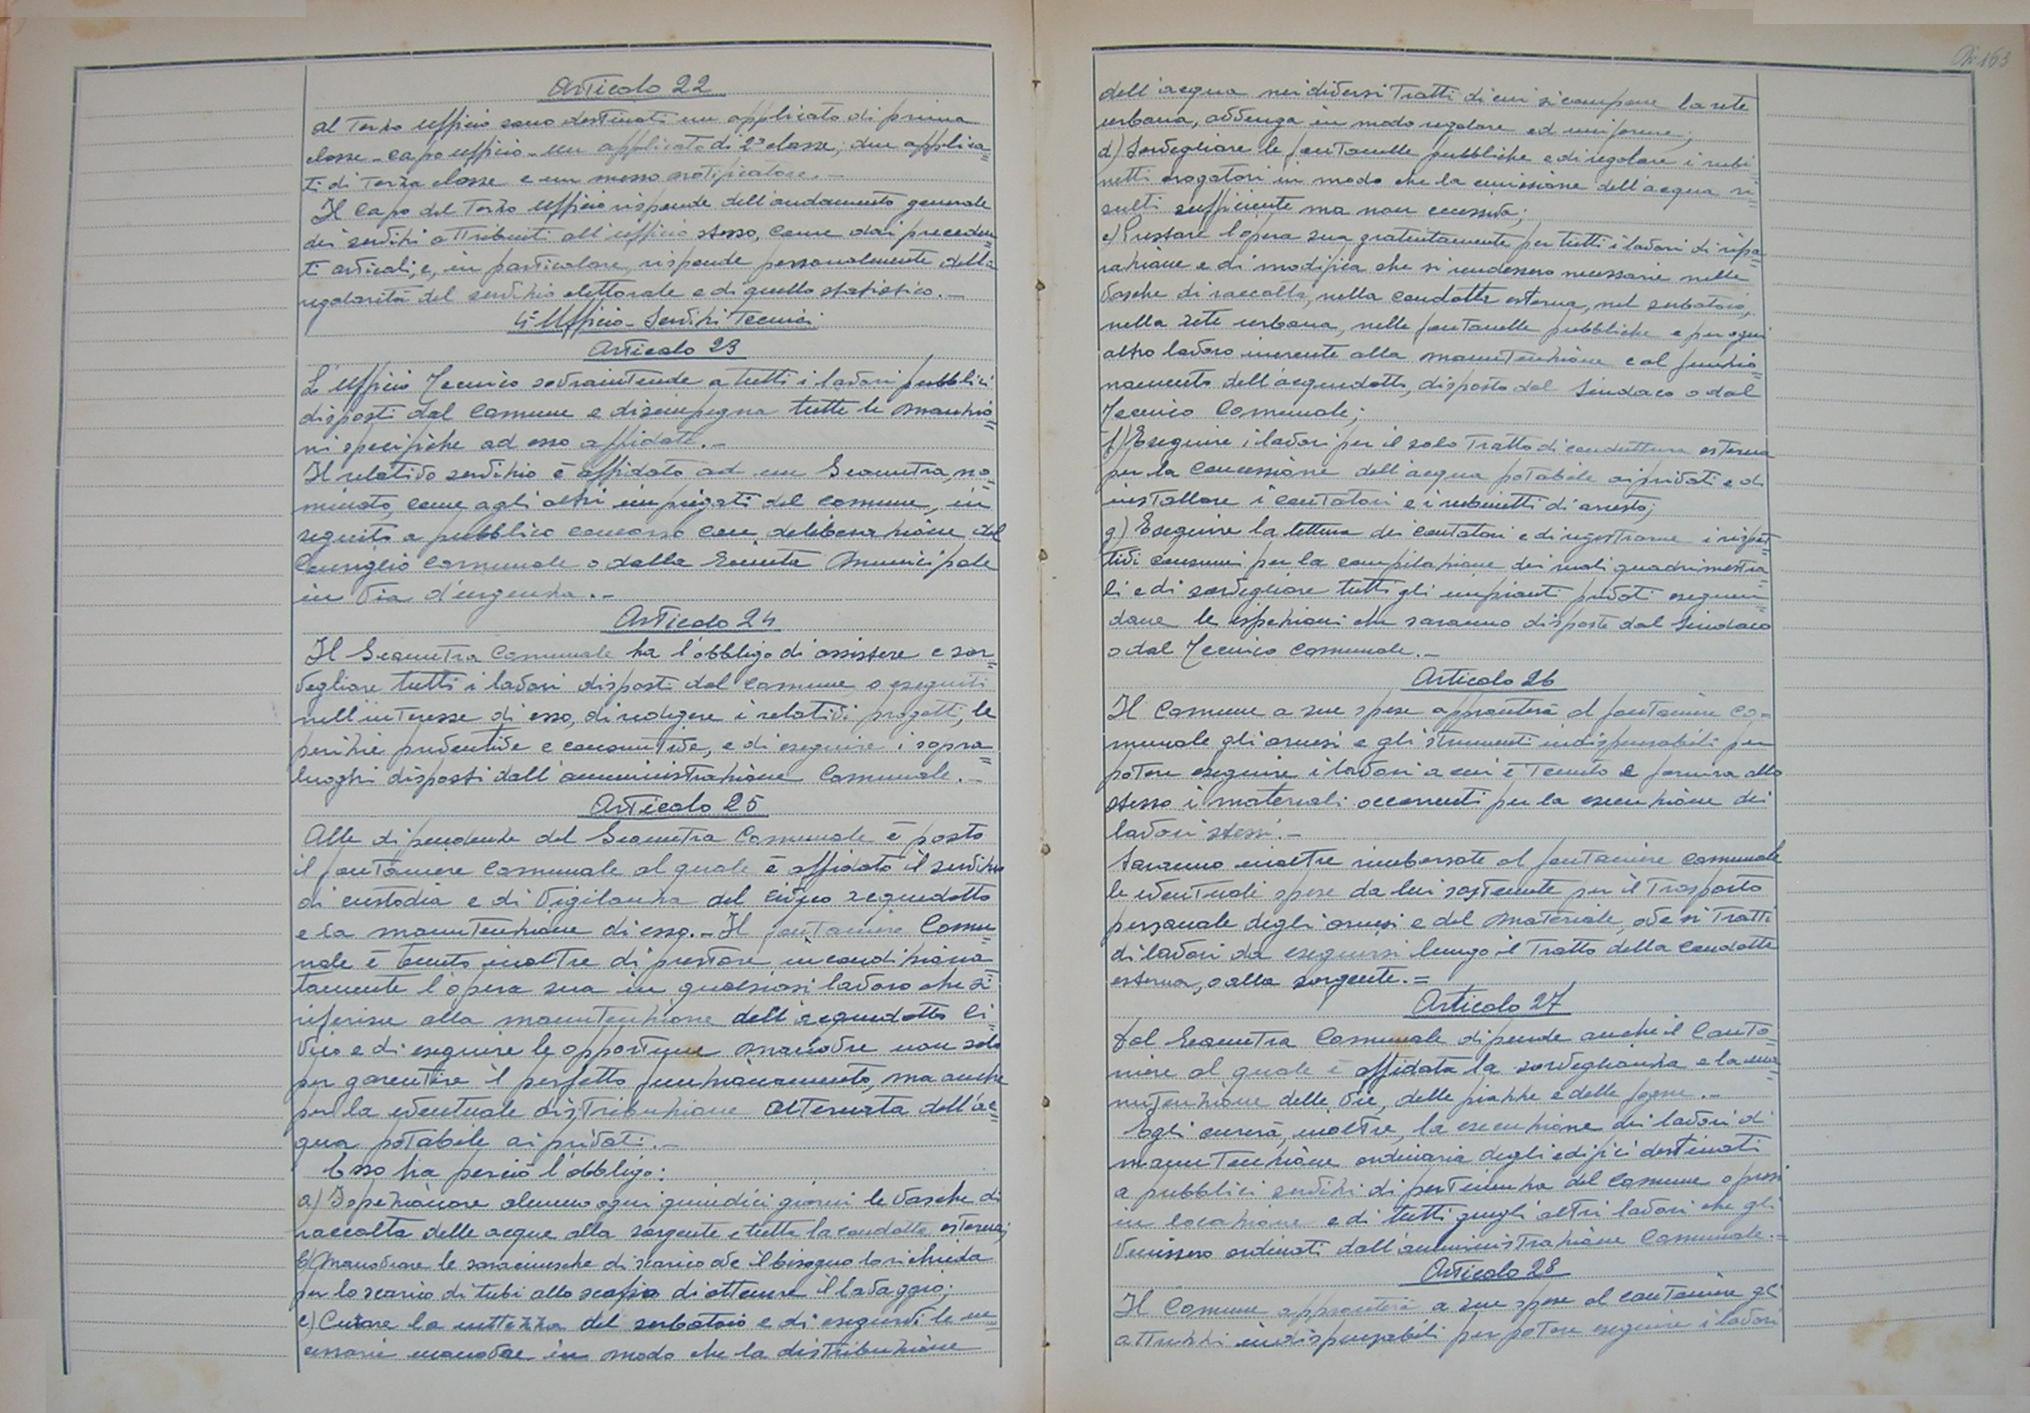 Articolo 22
Al Terzo Ufficio sono destinati un applicato di prima
classe - capo ufficio - un applicato di 2ª classe; due applica=
ti di Terza classe e un messo notificatore.-
Il Capo del Terzo Ufficio risponde dell'andamento generale
dei servizi attribuiti all'ufficio stesso, come dai preceden=
ti articoli, e, in particolare, risponde personalmente della
regolarità del servizio elettorale e di quello statistico.-
4° Ufficio - Servizi Tecnici
Articolo 23
L'Ufficio Tecnico sovraintende a tutti i lavori pubblici
disposti dal Comune e disimpegna tutte le mansio=
ni specifiche ad esso affidate.-
Il relativo servizio è affidato ad un Geometra, no=
minato, come agli altri impiegati del Comune, in
seguito a pubblico concorso con deliberazione del
Consiglio Comunale o dalla Giunta Municipale
in via d'urgenza.-
Articolo 24
Il Geometra Comunale ha l'obbligo di assistere e sor=
vegliare tutti i lavori disposti dal Comune o eseguiti
nell'interesse di esso, di redigere i relativi progetti, le
perizie preventive e consuntive, e di eseguire i sopra=
luoghi disposti dall'amministrazione Comunale.-
Articolo 25
Alle dipendenze del Geometra Comunale è posto
il fontaniere Comunale al quale è affidato il servizio
di custodia e di vigilanza del civico acquedotto
e la manutenzione di esso.- Il fontaniere Comu=
nale è tenuto inoltre di prestare incondiziona=
tamente l'opera sua in qualsiasi lavoro che si
riferisce alla manutenzione dell'acquedotto Ci=
vico e di eseguire le opportune manovre non solo
per garentire il perfetto funzionamento, ma anche
per la eventuale distribuzione alternata dell'ac=
qua potabile ai privati.-
Esso ha perciò l'obbligo:
a) Ispezionare almeno ogni quindici giorni le vasche di
raccolta delle acque alla sorgente e tutta la condotta esterna;
b) Manovrare le saracinesche di scarico ove il bisogno lo richieda
per lo scarico di tubi allo scopo di ottenere il lavaggio;
c) Curare la nettezza del serbatoio e di eseguirvi le ne=
cessarie manovre in modo che la distribuzione
dell'acqua nei diversi Tratti di cui si compone la rete
urbana, avvenga in modo regolare ed uniforme;
d) Sorvegliare le fontanelle pubbliche e di regolare i rubi=
netti erogatori in modo che la emissione dell'acqua ri=
sulti sufficiente ma non eccessiva;
e) Prestare l'opera sua gratuitamente per tutti i lavori di ripa=
razione e di modifica che si rendessero necessarie nelle
vasche di raccolta, nella condotta esterna, nel serbatoio,
nella rete urbana, nelle fontanelle pubbliche e per ogni
altro lavoro inerente alla manutenzione e al funzio=
namento dell'acquedotto, disposto dal Sindaco o dal
Tecnico Comunale;
f) Eseguire i lavori per il solo Tratto di conduttura esterna
per la concessione dell'acqua potabile ai privati e di
installare i contatori e i rubinetti di arresto;
g) Eseguire la lettura dei contatori e di registrarne i rispet=
tivi consumi per la compilazione dei ruoli quadrimestra=
li e di sorvegliare tutti gli impianti privati eseguen=
done le ispezioni che saranno disposte dal Sindaco
o dal Tecnico Comunale.-
Articolo 26
Il Comune a sue spese appronterà al fontaniere Co=
munale gli arnesi e gli strumenti indispensabili per
poter eseguire i lavori a cui è tenuto e fornirà allo
stesso i materiali occorrenti per la esecuzione dei
lavori stessi.-
Saranno inoltre rimborsate al fontaniere Comunale
le eventuali spese da lui sostenute per il Trasporto
personale degli arnesi e del materiale, ove si Tratti
di lavori da eseguirsi lungo il Tratto della condotta
esterna, o alla sorgente.=
Articolo 27
Dal Geometra Comunale dipende anche il Canto=
niere al quale è affidata la sorveglianza e la ma=
nutenzione delle vie, delle piazze e delle fogne.-
Egli curerà, inoltre, la esecuzione dei lavori di
manutenzione ordinaria degli edifici destinati
a pubblici servizi di pertinenza del Comune o presi
in locazione e di tutti quegli altri lavori che gli
venissero ordinati dall'amministrazione Comunale.=
Articolo 28
Il Comune appronterà a sue spese al cantoniere gli
attrezzi indispensabili per poter eseguire i lavori